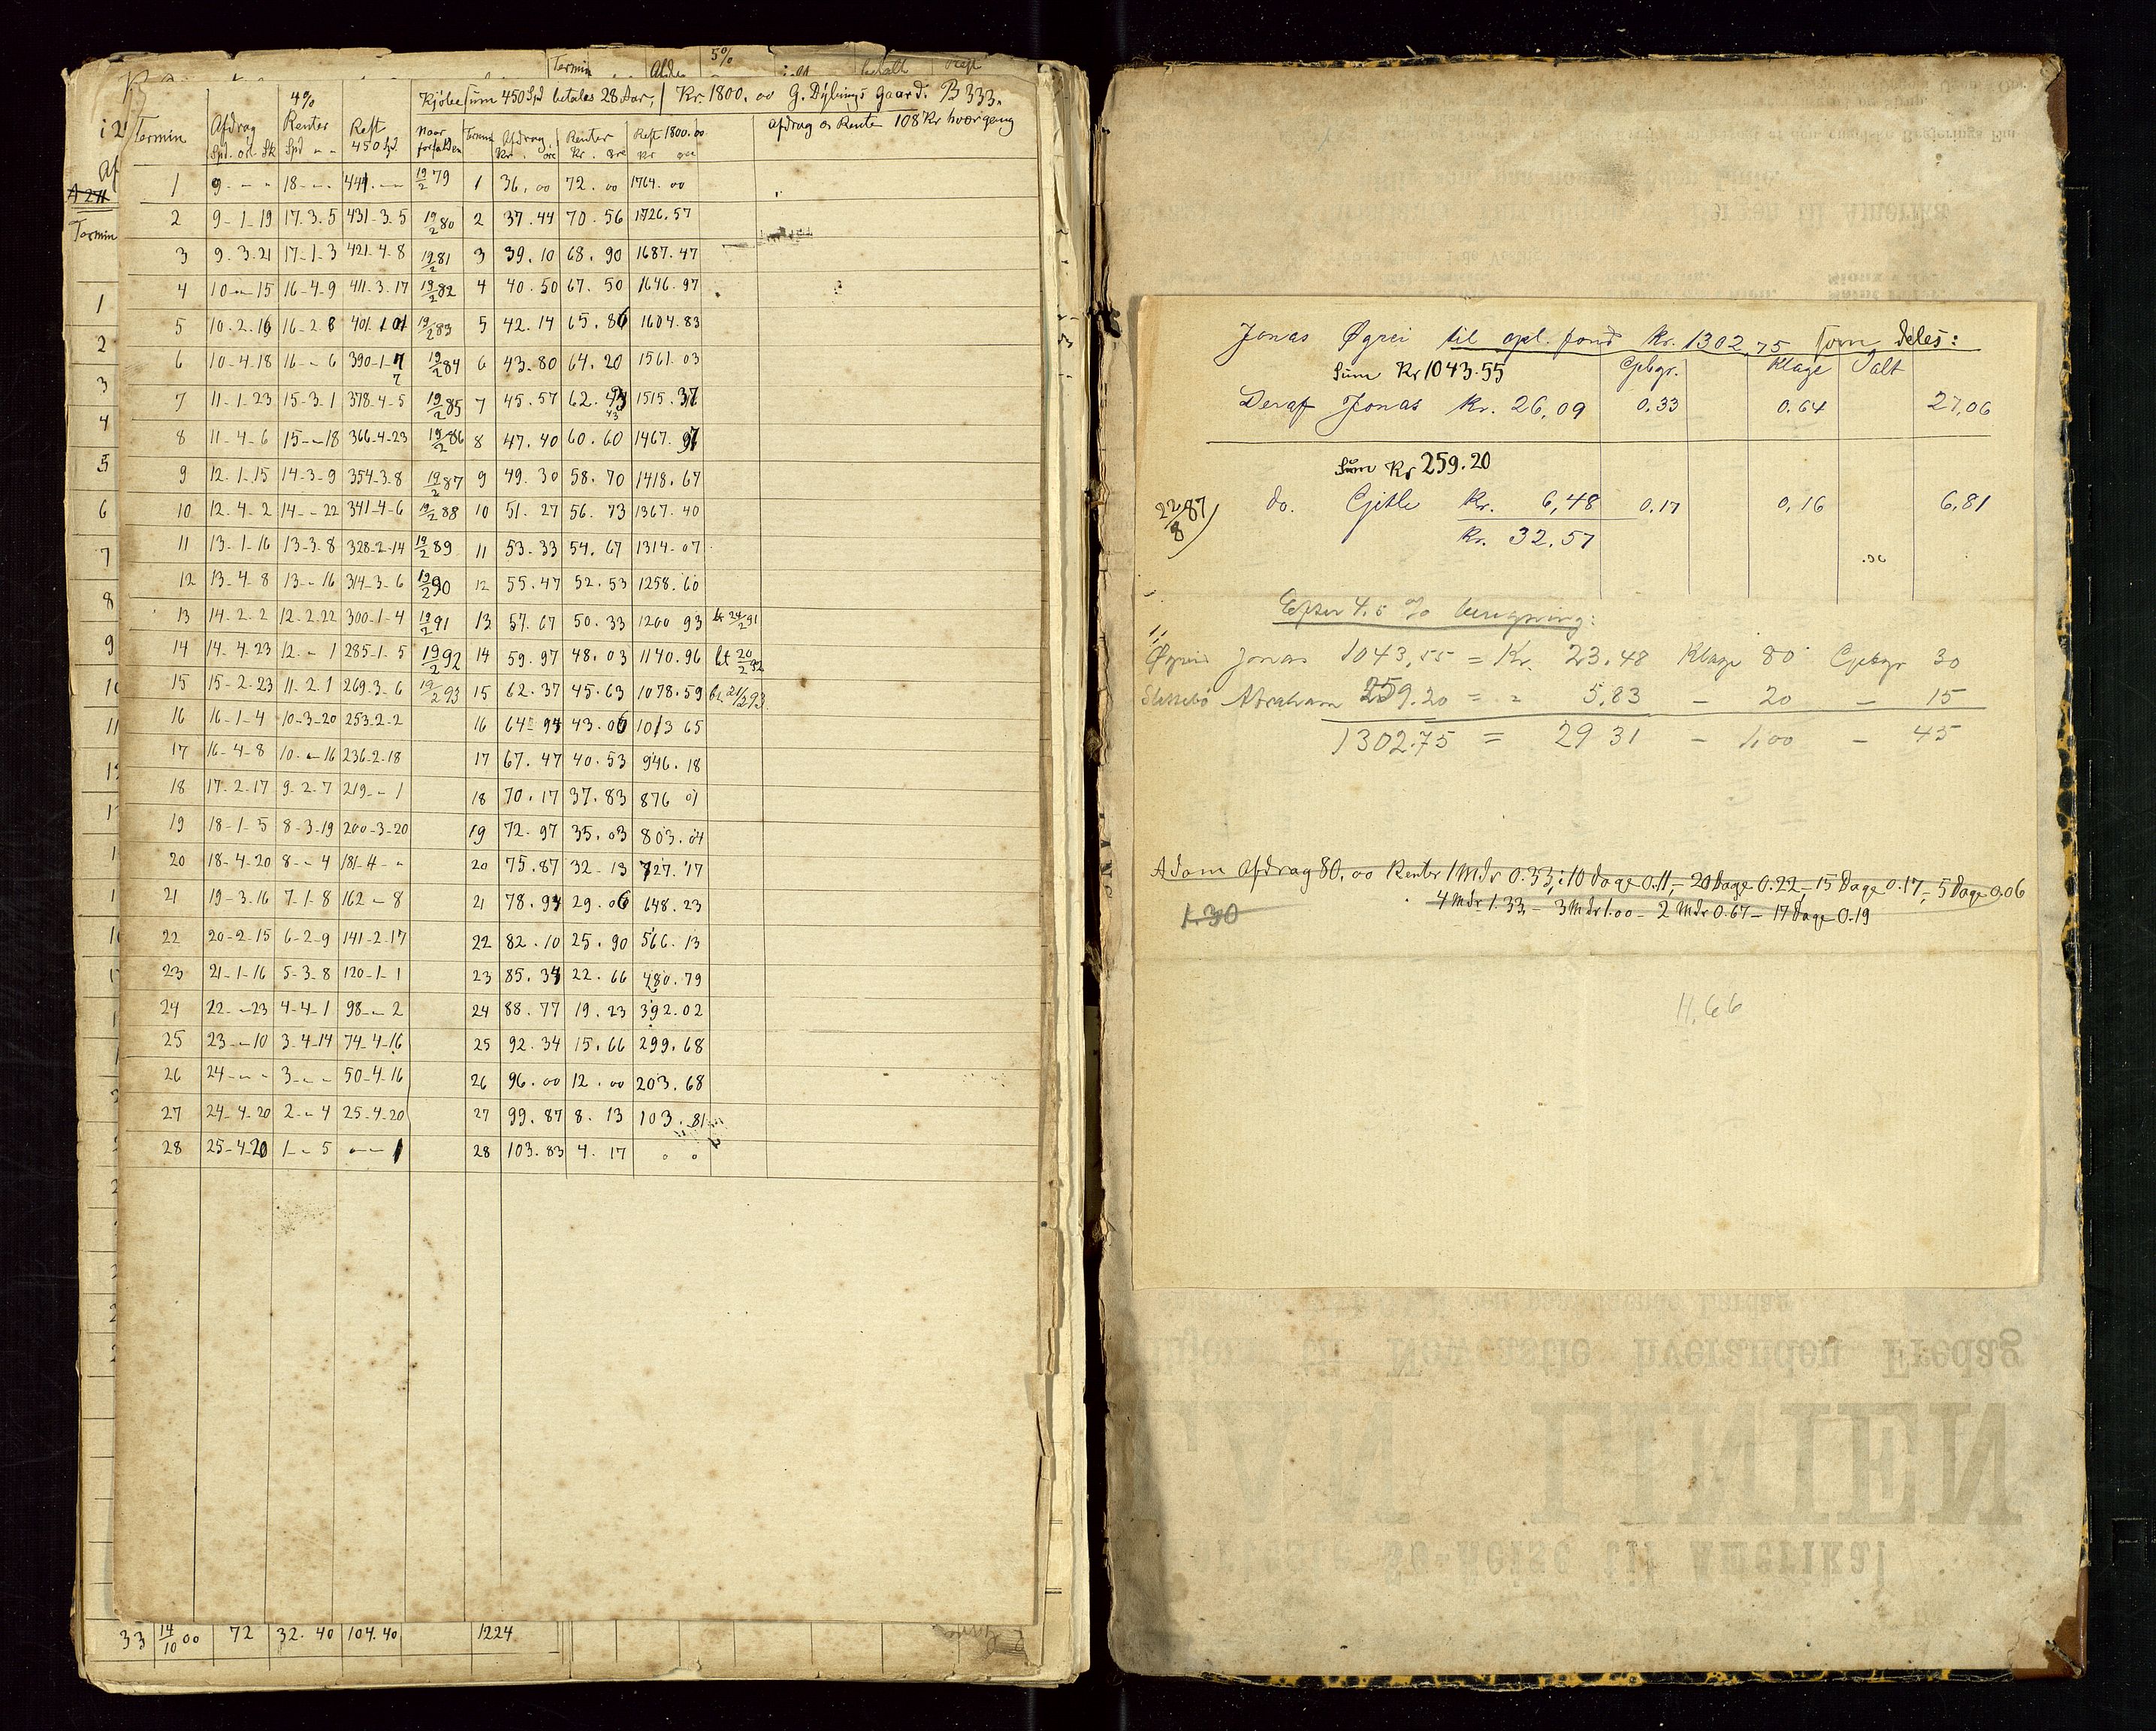 Termin Afdr 5% i alt betalt Rest
Termin Afdrag 4% Renter Rest
Spd. ort Sk Spd - - 450 Spd
Kjøbesum 450 Spd betales 28 Aar, / Kr. 1800.00 G. Dybings Gaard. B 333.
Afdrag og Renter 108 Kr hver gang
naar forfalden Termin Afdrag Kr. øre Renter Kr. øre Rest 1800.00 Kr øre
1 9 - - - 18 - - - 441 - - 19/2 79 1 36.00 72.00 1764.00
2 9-1-19 17.3.5 431-3.5 19/2 80 2 37.44 70.56 1726.57
3 9.3.21 17-1-3 421.4.8 19/2 81 3 39.10 68.90 1687.47
4 10-"-15 16-4-9 411.3.17 19/2 82 4 40.50 67.50 1646.97
5 10.2.16 16-2-8 401.1.01 19/2 83 5 42.14 65.86 1604.83
6 10-4.18 16-"-6 390-1-7 19/2 84 6 43.80 64.20 1561.03
7 11-1-23 15-3.1 378-4-5 19/2 85 7 45.57 62.43 1515.37
8 11-4-6 15-"-18 366-4-23 19/2 86 8 47.40 60.60 1467.97
9 12.1.15 14-3-9 354-3-8 19/2 87 9 49.30 58.70 1418.67
10 12.4.2 14-"-22 341-4-6 19/2 88 10 51.27 56.73 1367.40
11 13-1-16 13-3.8 328-2-14 19/2 89 11 53.33 54.67 1314.07
12 13-4.8 13-"-16 314-3-6 19/2 90 12 55.47 52.53 1258.60
13 14-2-2 12-2.22 300-1-4 19/2 91 13 57.67 50.33 1200 93 bt 24/2 91
14 14.4.23 12.-1 285-1.5 19/2 92 14 59.97 48.03 1140.96 bt 20/2 92
15 15-2.23 11.2.1 269.3-6 19/2 93 15 62.37 45.63 1078.59 bt. 21/2 93
16 16-1-4 10-3-20 253-2-2 16 64.94 43.06 1013 65
17 16-4-8 10-"-16 236-2-18 17 67.47 40.53 946.18
18 17-2-17 9-2-7 219-"-1 18 70.17 37.83 876 01
19 18-1-5 8-3-19 200-3-20 19 72.97 35.03 803.04
20 18-4-20 8-"-4 181-4-" 20 75.87 32.13 727.17
21 19-3.16 7-1-8 162-"-8 21 78.94 29.06 648.23
22 20-2-15 6-2-9 141-2-17 22 82.10 25.90 566.13
23 21-1-16 5-3-8 120-1-1 23 85.34 22.66 480.79
24 22-"-23 4-4-1 98-"-2 24 88.77 19.23 392.02
25 23-"-10 3-4-14 74-4-16 25 92.34 15.66 299.68
26 24-"-" 3-"-" 50-4-16 26 96.00 12.00 203.68
27 24-4-20 2-"-4 25-4-20 27 99.87 8.13 103.81
28 25-4-20 1-"-5 "-"-1 28 103.83 4.17 0 0
33 14/10 00 72 32.40 104.40 1224
Termin
1
2
3
4
5
6
7
8
9
Jonas Øgrei til opl. fond Kr. 1302,75 som deles:
Sum Kr 1043.55 Gjebgr. Klage Ialt
Deraf Jonas Kr. 26,09 0.33 0.64 27,06
Sum Kr 259.20
22/8 87 do. Gjitle Kr. 6,48 0.17 0,16 6,81
Kr. 32.57
Efter 4.5 % beregning:
Øgreid Jonas 1043,55 = Kr. 23.48 Klage 80 Gjebgr 30
Slettebø Abraham 259.20 = " 5.83 - 20 - 15
1302.75 = 29 31 - 1,00 - 45
Adam Afdrag 80,00 Renter 1 Mdr 0.33, i 10 dage 0.11, - 20 Dage 0.22 - 15 Dage 0.17 - 5 Dage 0.06
4 Mdr 1.33 - 3 Mdr 1.00 - 2 Mdr 0.67 - 17 Dage 0.19
1.30
11,66
til Newcastle hveranden Fredag
LINIEN
Reise til Amerika!